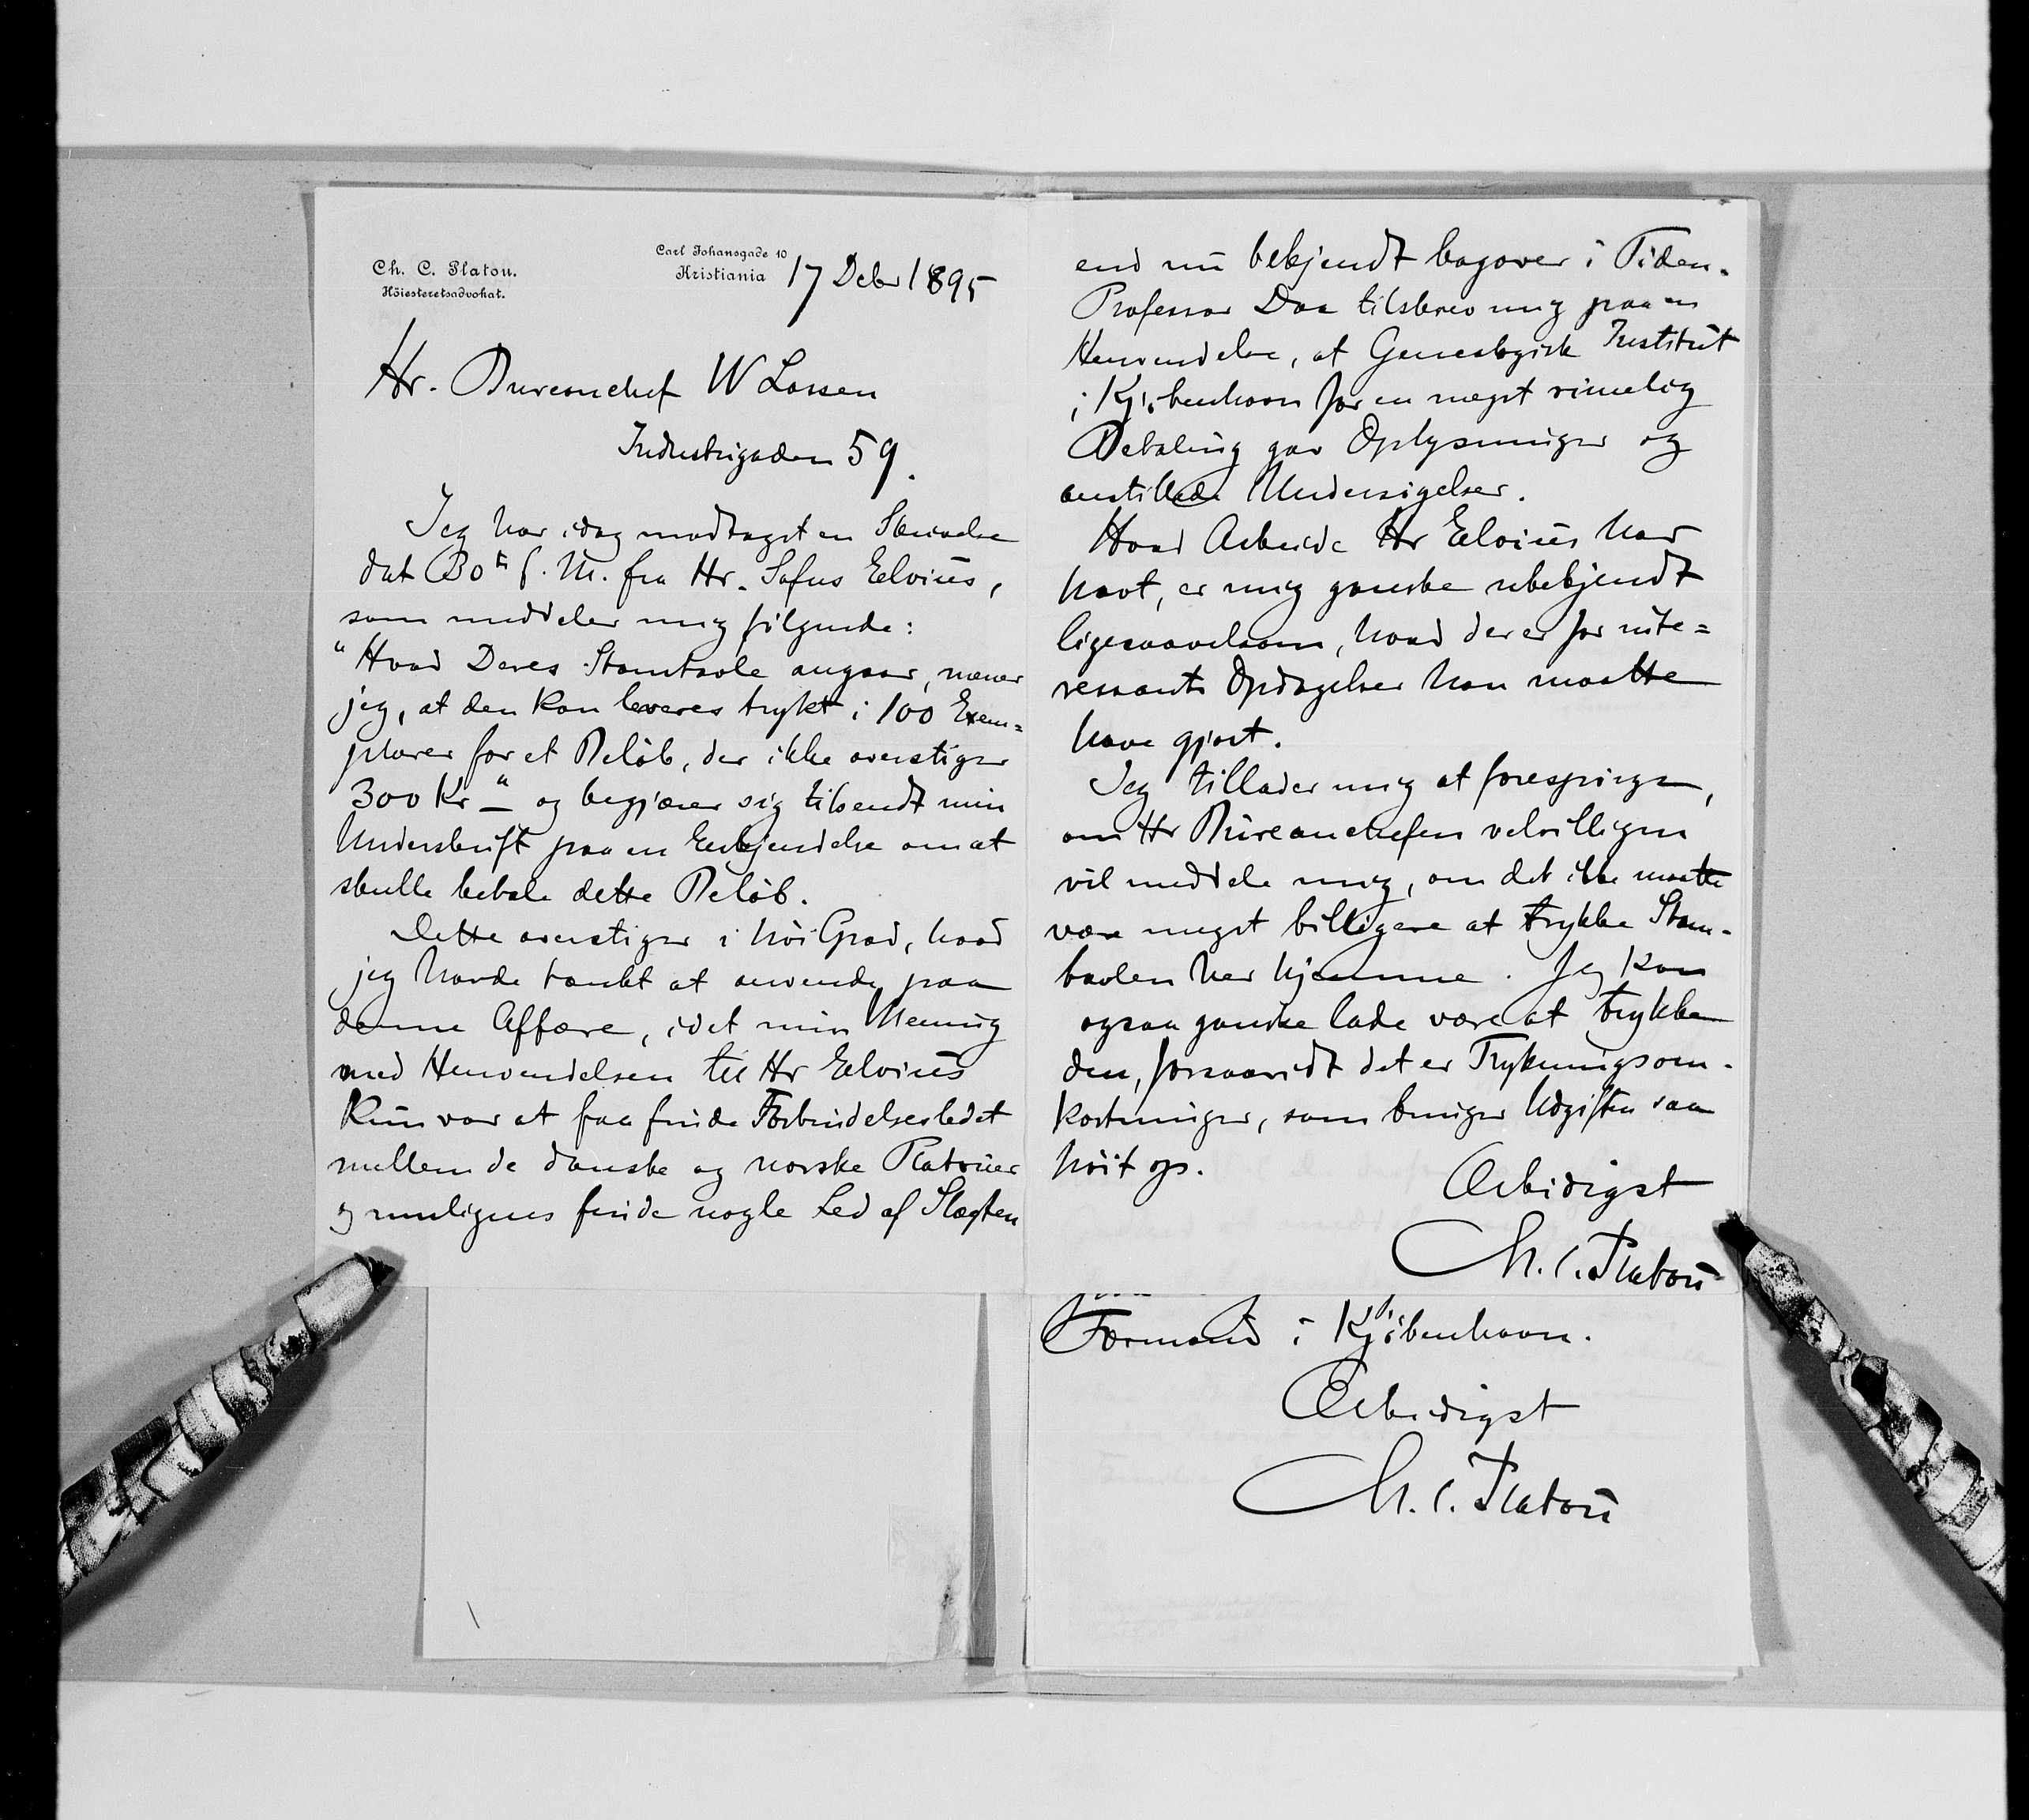 Ch. C. Platou.
Höiesteretsadvokat.
Carl Johansgade 10
Kristiania 17 Debr 1895
Hr. Bureauchef W Lassen
Industrigaden 59.
Jeg har idag modtaget en Skrivelse
dat 30te f. M. fra Hr. Sofus Elvius,
som meddeler mig følgende:
"Hvad Deres Stamtavle angaar, mener
jeg, at den kan leveres trykt i 100 Exem=
plarer for et Beløb, der ikke overstiger
300 Kr" og begjærer sig tilsendt min
Underskrift paa en Erkjendelse om at
skulle betale dette Beløb.
Dette overstiger i höi Grad, hvad
jeg havde tænkt at anvende paa
denne Affære, idet min Mening
med Henvendelsen til Hr Elvius
kun var at faa finde Forbindelsesledet
mellem de danske og norske Platouer
og muligens finde nogle Led af Slægten
end nu bekjendt bagover i Tiden.
Professor Daa tilskrev mig paa en
Henvendelse, at Genealogisk Institut
i Kjøbenhavn for en meget rimelig
Betaling gav Oplysninger og
anstillede Undersøgelser.
Hvad Arbeide Hr Elvius har
havt, er mig ganske ubekjendt
ligesaavelsom, hvad der er for inte=
ressante Opdagelser han maatte
have gjort.
Jeg tillader mig at forespørge,
om Hr Bureauchefen velvilligen
vil meddele mig, om det ikke maatte
være meget billigere at trykke Stam-
tavlen her hjemme. Jeg kan
ogsaa ganske lade være at trykke
den, forsaavidt det er Trykningsom-
kostninger, som bringer Udgiften saa
høit op.
Ærbødigst
Ch. C. Platou
Formand i Kjøbenhavn.
Ærbødigst
Ch. C. Platou